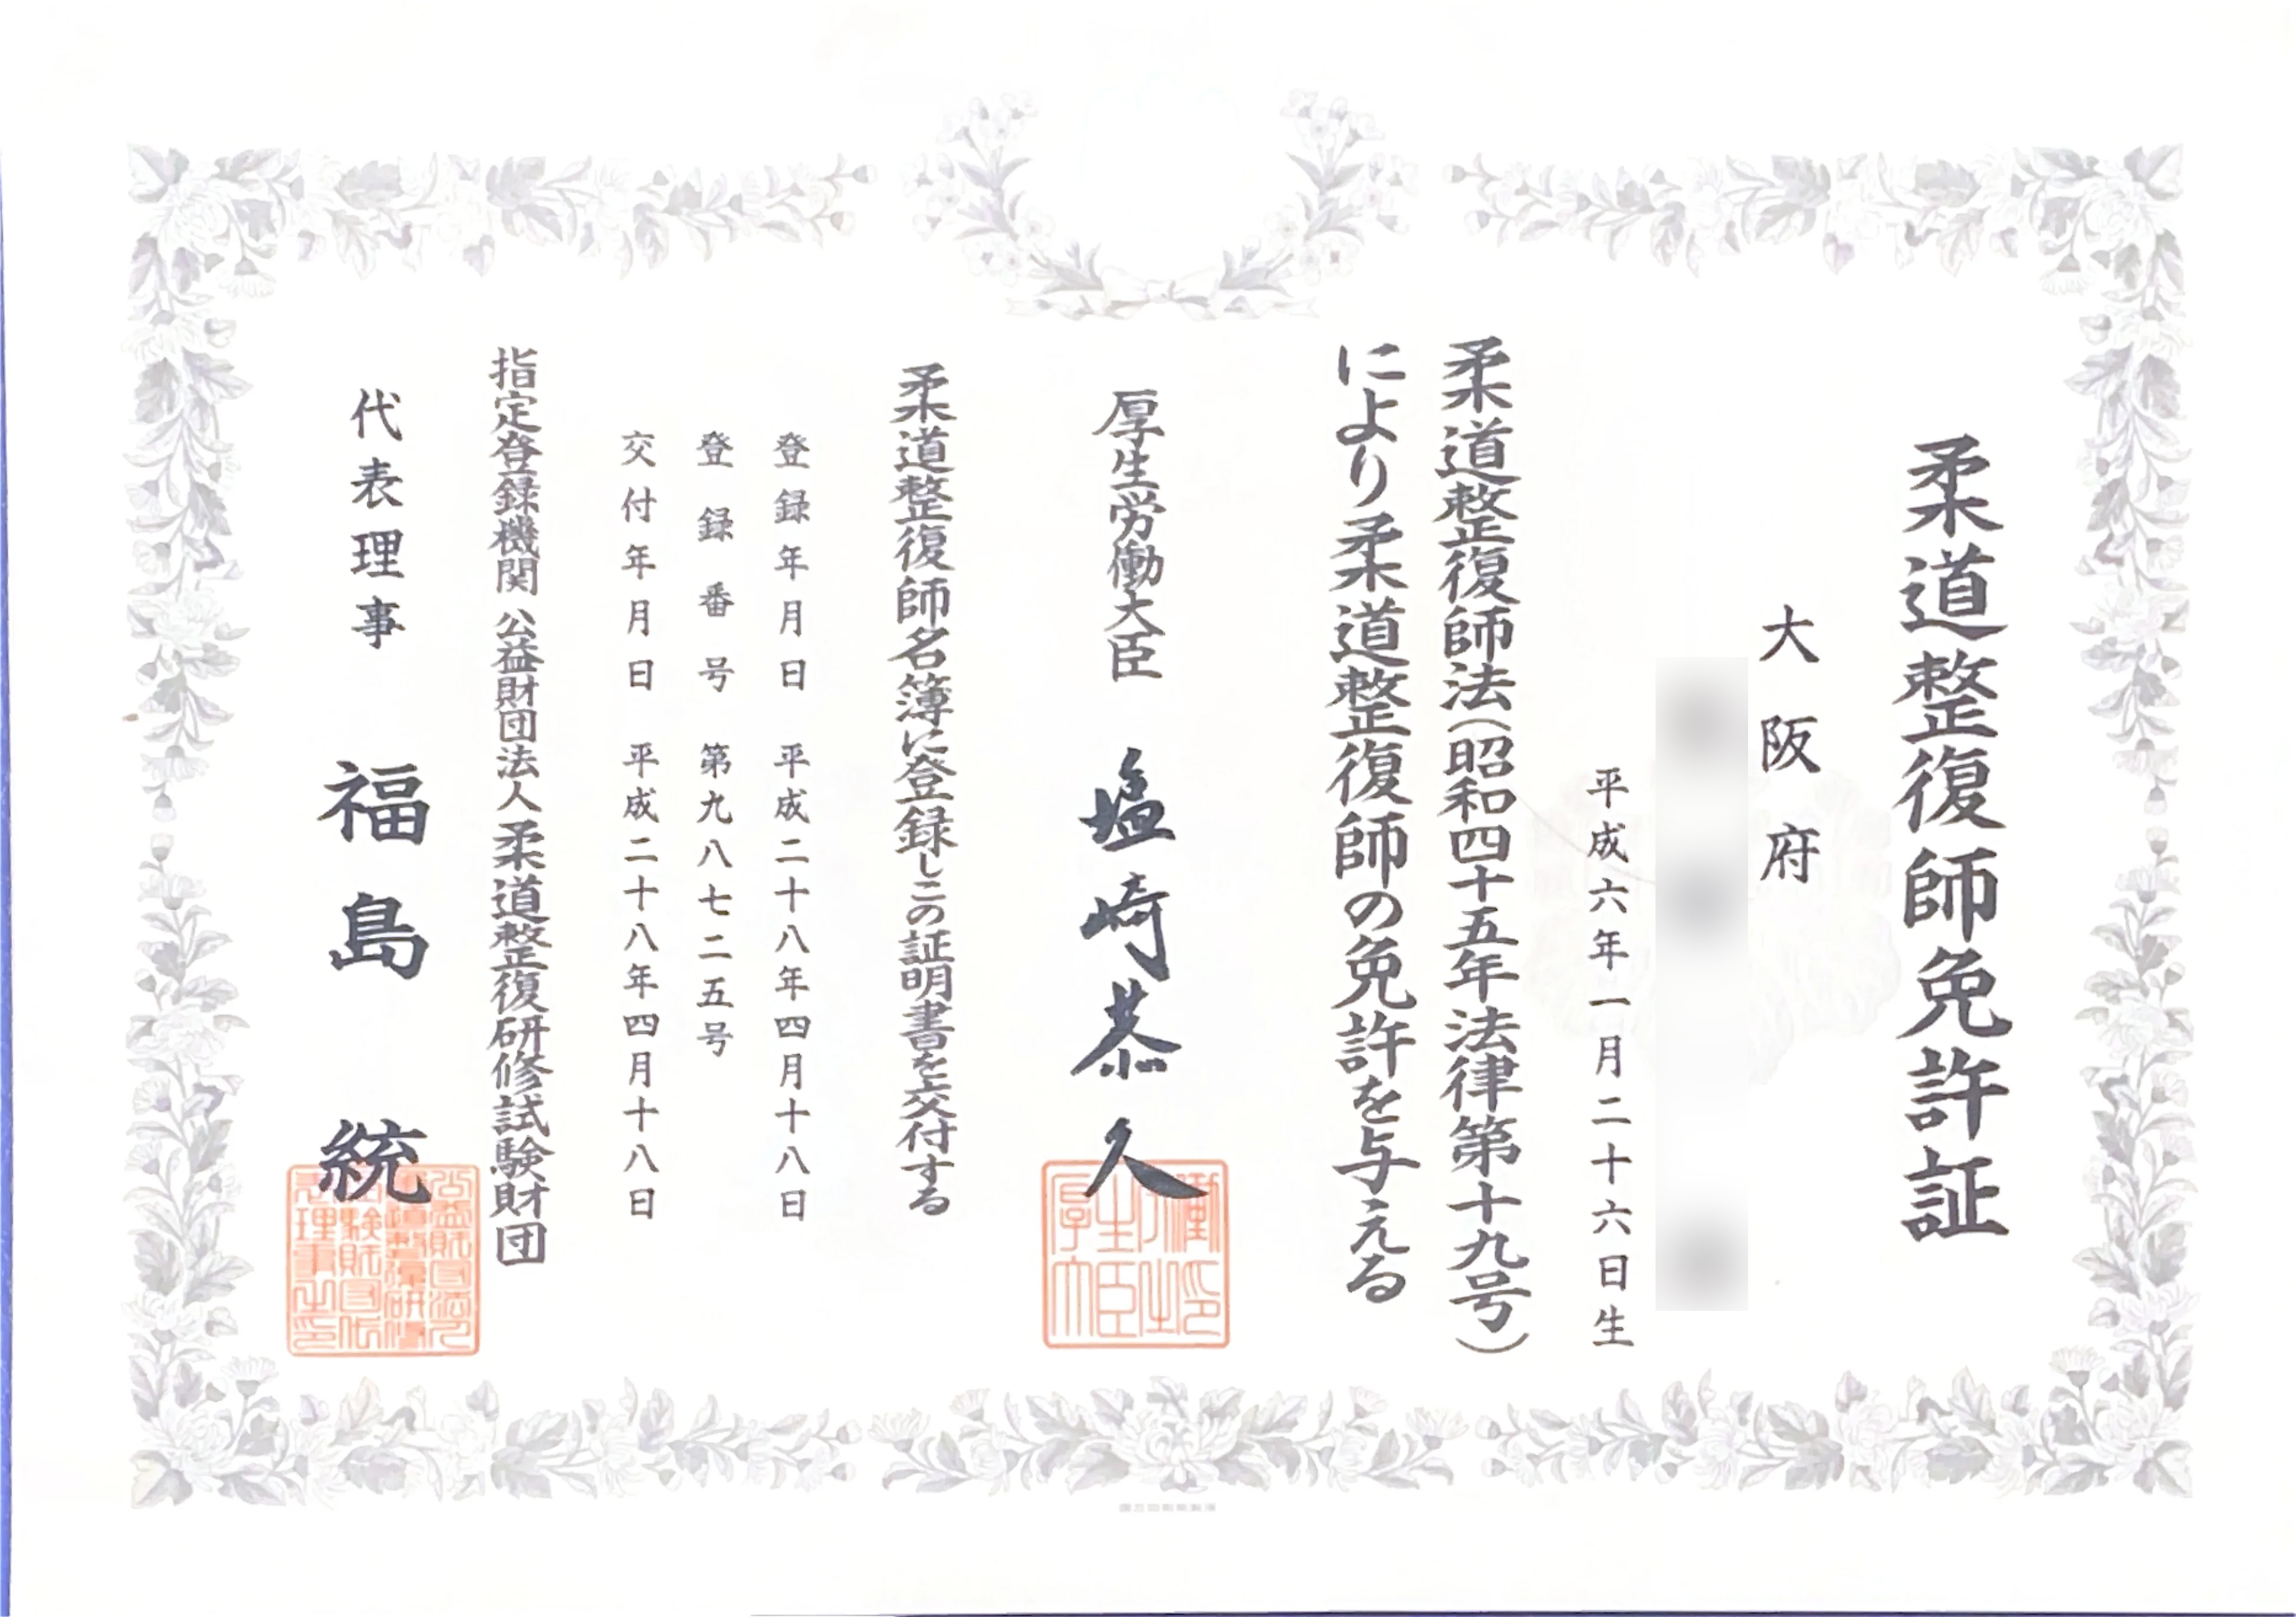 柔道整復師免許証
大阪府
平成六年一月二十六日生
柔道整復師法(昭和四十五年法律第十九号)
により柔道整復師の免許を与える
厚生労働大臣 塩崎恭久
柔道整復師名簿に登録しこの証明書を交付する
登録年月日 平成二十八年四月十八日
登録番号 第九八七二五号
交付年月日 平成二十八年四月十八日
指定登録機関 公益財団法人柔道整復研修試験財団
代表理事 福島統